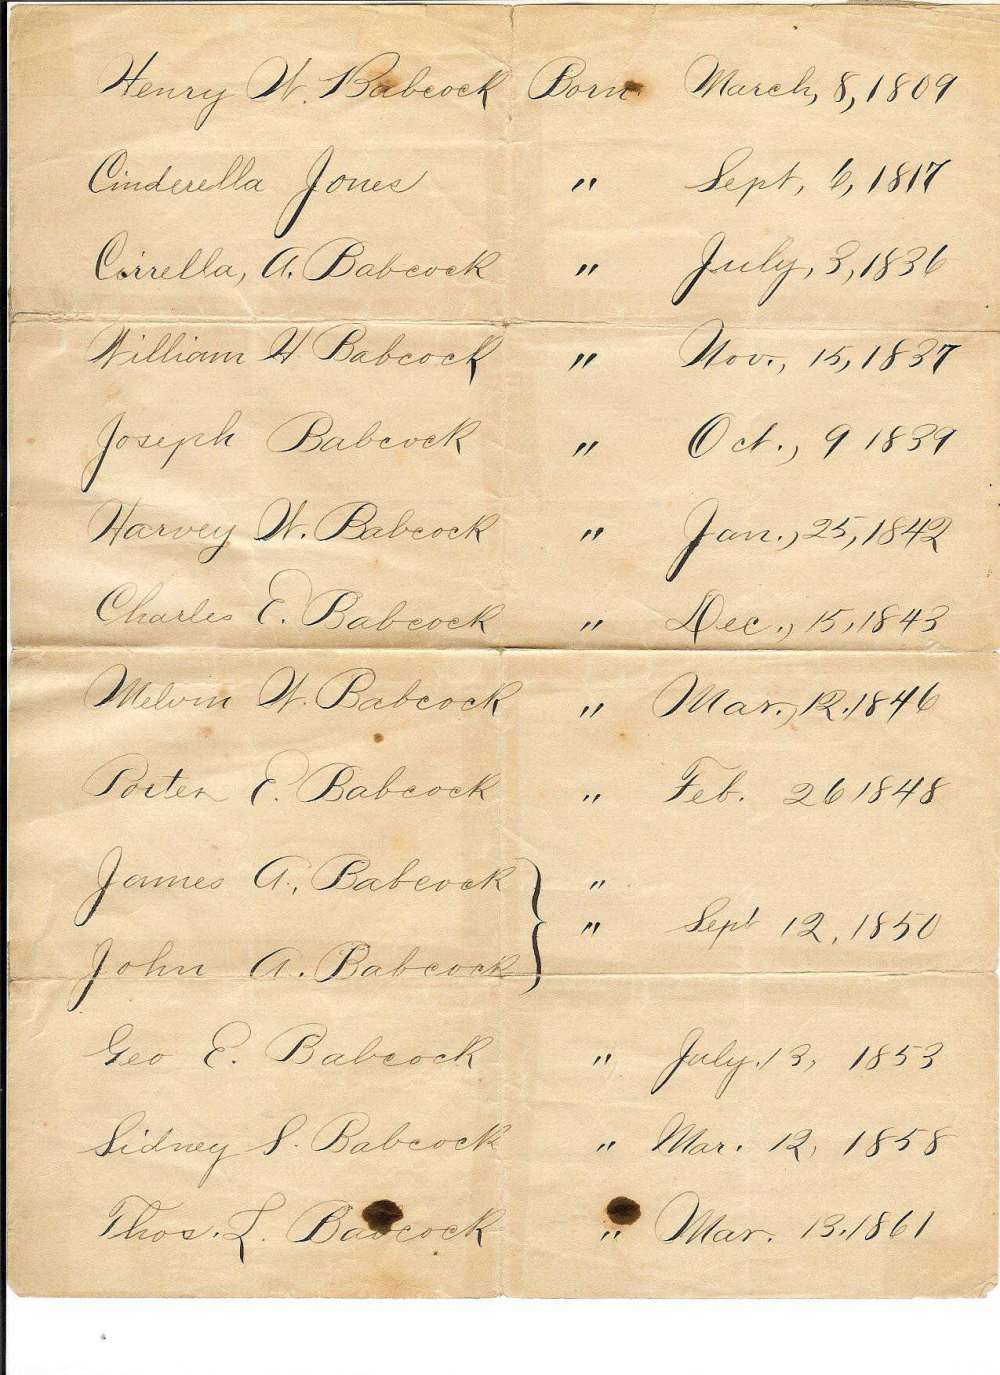 Henry W. Babcock Born March, 8, 1809
Cinderella Jones " Sept, 6, 1817
Cirrella, A. Babcock " July, 3, 1836
William H Babcock " Nov., 15, 1837
Joseph Babcock " Oct., 9 1839
Harvey W. Babcock " Jan., 25, 1842
Charles E. Babcock " Dec., 15, 1843
Melvin W. Babcock " Mar., 12. 1846
Porter E. Babcock " Feb. 26 1848
James A. Babcock } "
" Sept 12, 1850
John A. Babcock
Geo E. Babcock " July. 13, 1853
Sidney S. Babcock " Mar. 12, 1858
Thos. L. Babcock " Mar. 13. 1861